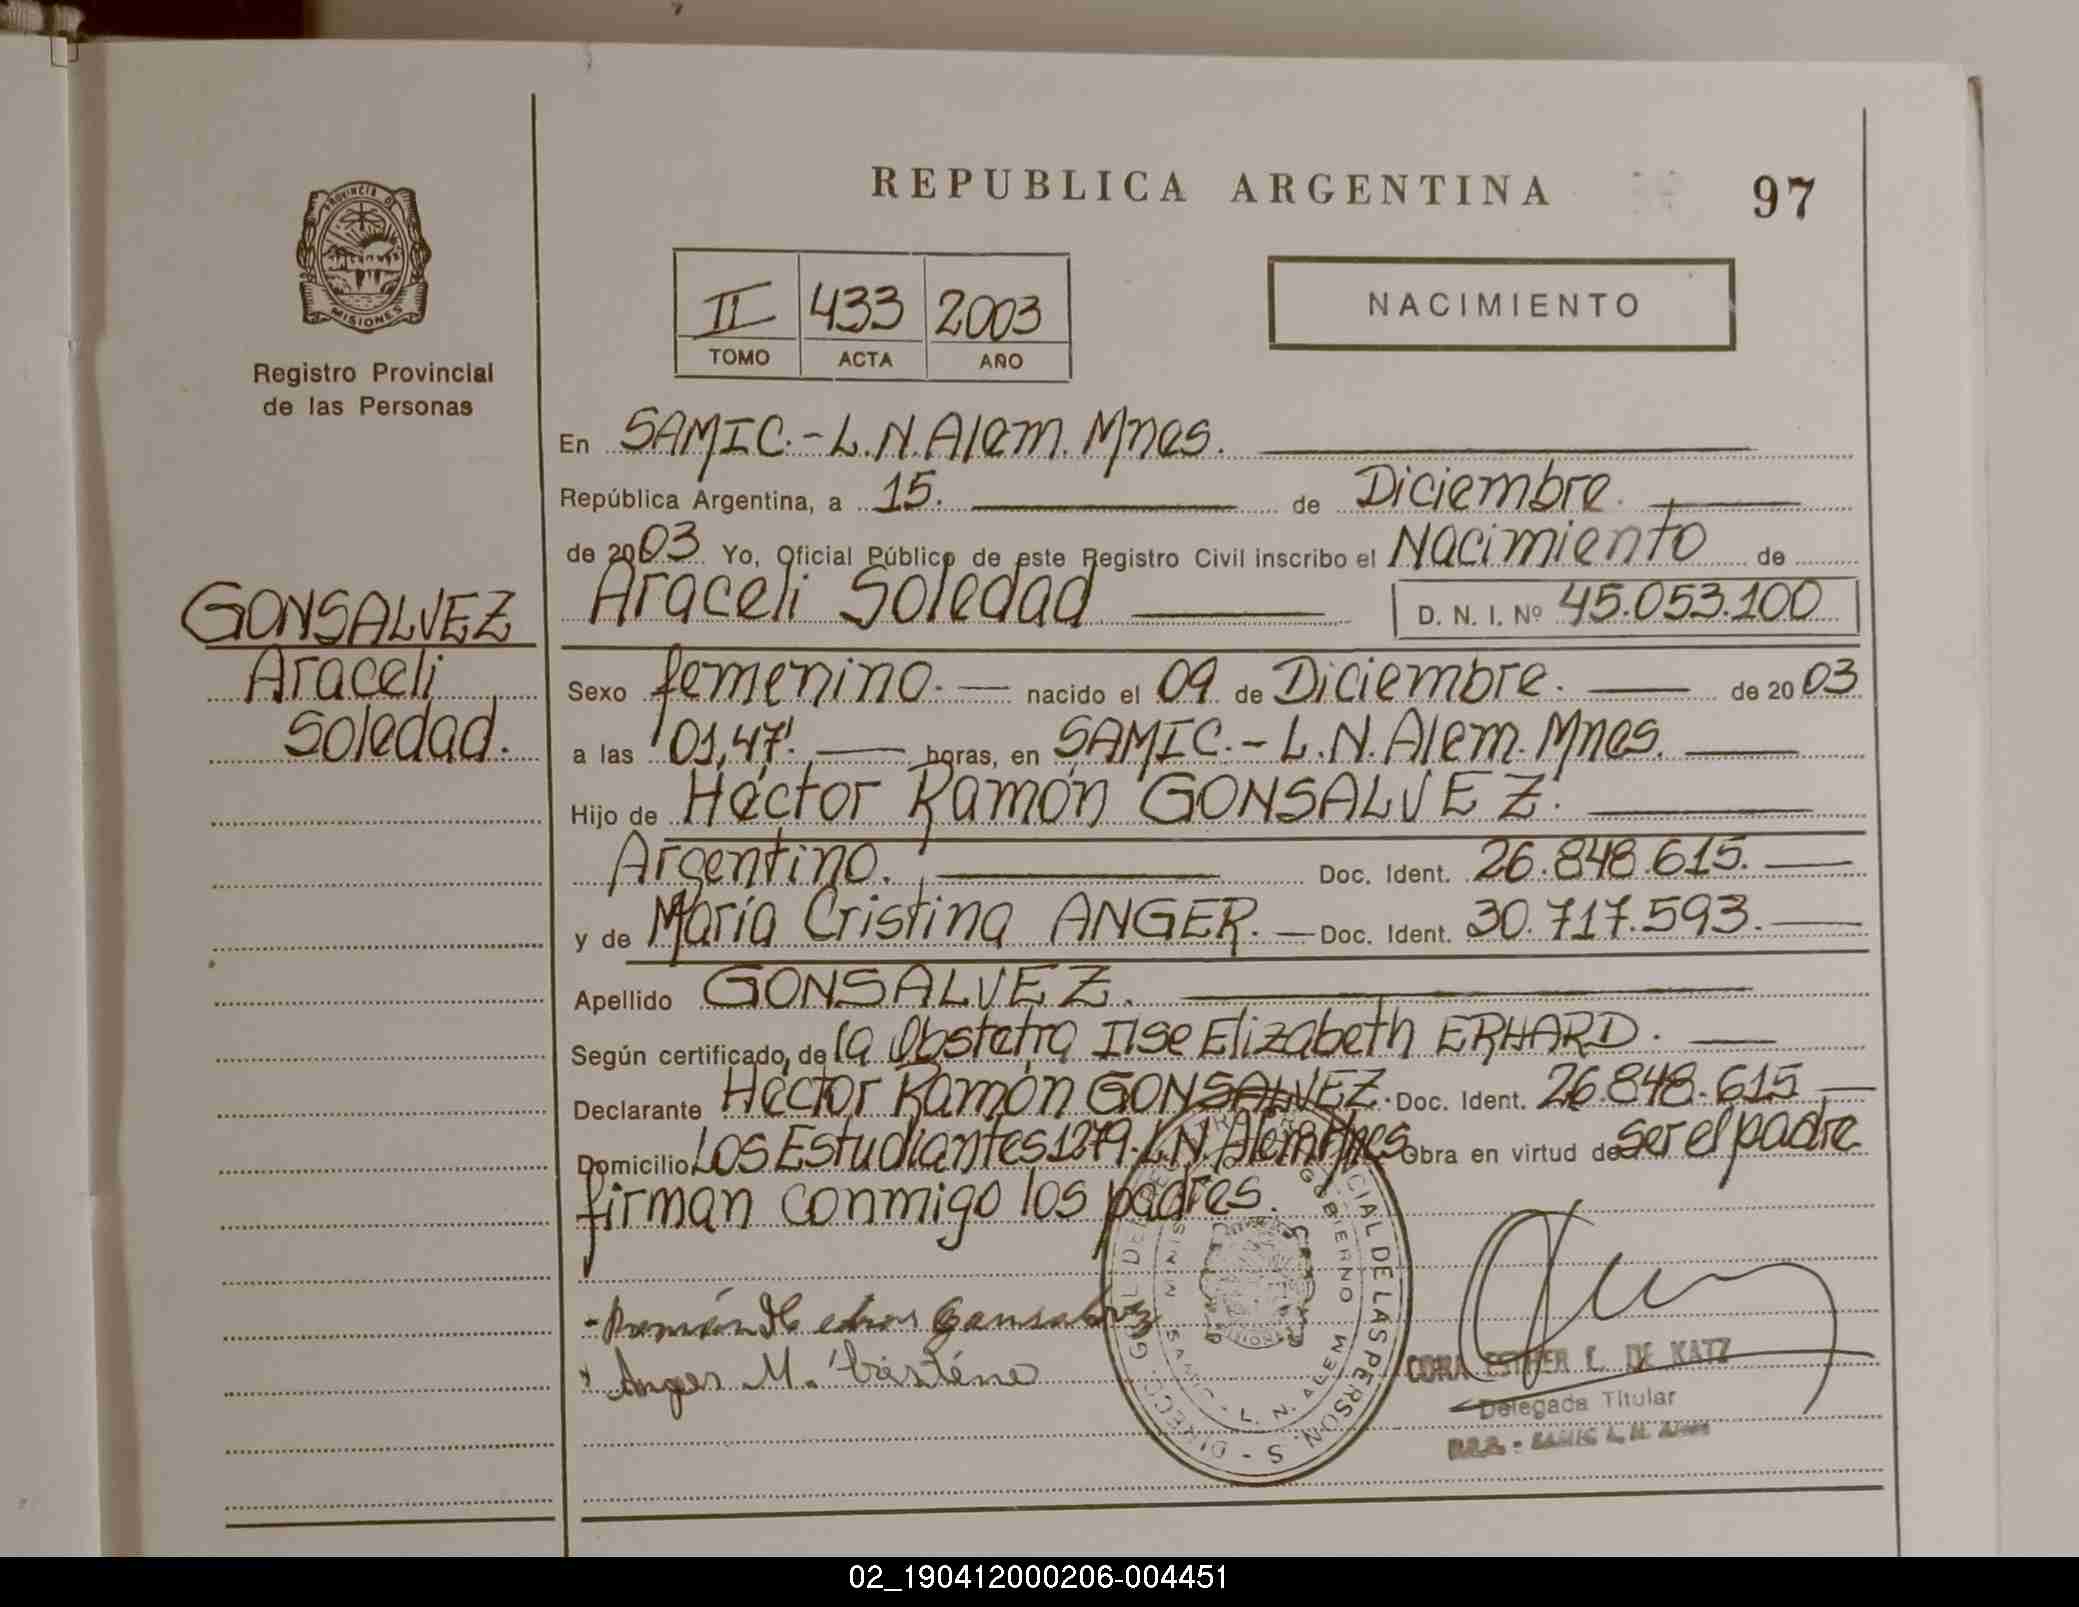 REPUBLICA ARGENTINA
97
PROVINCIA DE
MISIONES
Registro Provincial
de las Personas
II 433 2003
TOMO ACTA AÑO
NACIMIENTO
En SAMIC.-L.N.Alem.Mnes.
República Argentina, a 15. de Diciembre.
de 2003 Yo, Oficial Público de este Registro Civil inscribo el Nacimiento de
Araceli Soledad D. N. I. Nº 45.053.100
GONSALVEZ
Araceli
Soledad.
Sexo femenino. nacido el 09 de Diciembre. de 2003
a las 01,47'. horas, en SAMIC.-L.N.Alem.Mnes.
Hijo de Héctor Ramón GONSALVEZ.
Argentino. Doc. Ident. 26.848.615.
y de María Cristina ANGER. Doc. Ident. 30.717.593.
Apellido GONSALVEZ.
Según certificado, de la Obstetra Ilse Elizabeth ERHARD.
Declarante Héctor Ramón GONSALVEZ. Doc. Ident. 26.848.615
Domicilio Los Estudiantes 1279. L.N.Alem Mnes Obra en virtud de ser el padre
firman conmigo los padres.
Anger M.
CIAL DE LAS PERSON S - DIRECC. G
GOBIERNO
SAMIC - L. N. ALEM
CORA ESTHER DE KATZ
Delegada Titular
SAMIC L. N. Alem
02_190412000206-004451